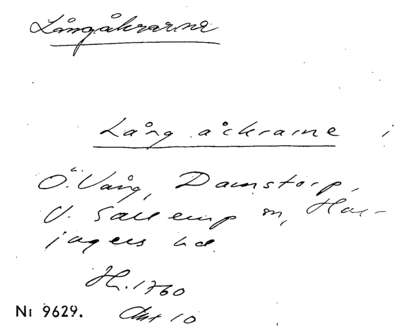 Långåkrarne
Lång åckrarne i
Ö. Vång, Damstorp,
V. Sallerup sn, Har-
jagers hd.
H. 1760
Akt 10
Nr 9629.